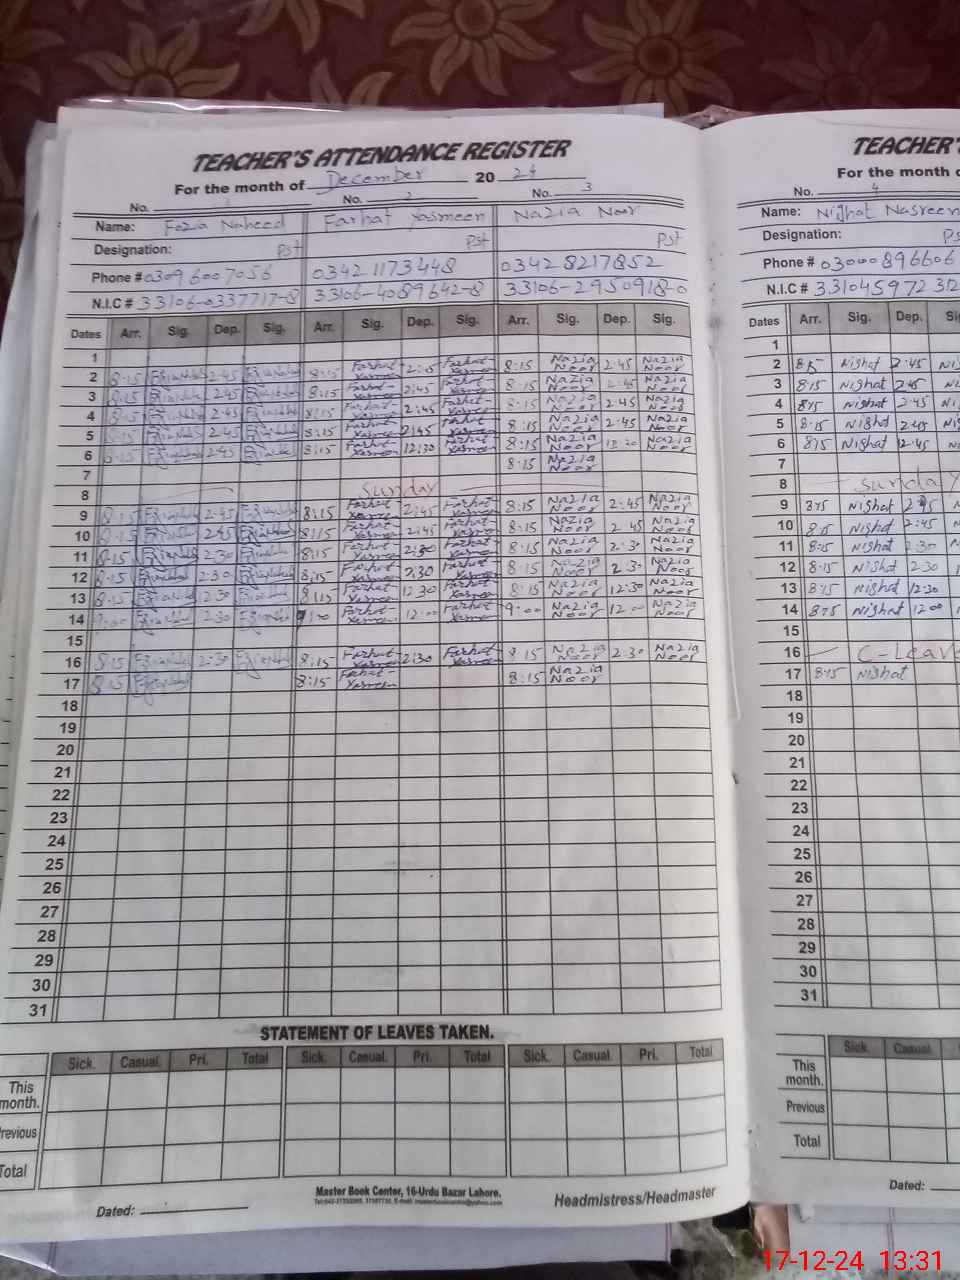 TEACHER'S ATTENDANCE REGISTER
For the month of December 20 24
No. 1 No. 2 No. 3
Name: Fozia Naheed Farhat Yasmeen Nazia Noor
Designation: Pst Pst Pst
Phone # 03096007056 03421173448 03428217852
N.I.C # 33106-0337717-8 33106-4089642-8 33106-2950918-0
Dates Arr. Sig. Dep. Sig. Arr. Sig. Dep. Sig. Arr. Sig. Dep. Sig.
1
2 8:15 2:45 8:15 Farhat Yasmeen 2:45 Farhat Yasmeen 8:15 Nazia Noor 2:45 Nazia Noor
3 8:15 2:45 8:15 Farhat Yasmeen 2:45 Farhat Yasmeen 8:15 Nazia Noor 2:45 Nazia Noor
4 8:15 2:45 8:15 Farhat Yasmeen 2:45 Farhat Yasmeen 8:15 Nazia Noor 2:45 Nazia Noor
5 8:15 2:45 8:15 Farhat Yasmeen 2:45 Farhat Yasmeen 8:15 Nazia Noor 2:45 Nazia Noor
6 8:15 2:45 8:15 Farhat Yasmeen 12:30 Farhat Yasmeen 8:15 Nazia Noor 12:30 Nazia Noor
7 8:15 Nazia Noor
8 Sunday
9 8:15 2:45 8:15 Farhat Yasmeen 2:45 Farhat Yasmeen 8:15 Nazia Noor 2:45 Nazia Noor
10 8:15 2:45 8:15 Farhat Yasmeen 2:45 Farhat Yasmeen 8:15 Nazia Noor 2 45 Nazia Noor
11 8:15 2:30 8:15 Farhat Yasmeen 2:30 Farhat Yasmeen 8:15 Nazia Noor 2:30 Nazia Noor
12 8:15 2:30 8:15 Farhat Yasmeen 2:30 Farhat Yasmeen 8:15 Nazia Noor 2:30 Nazia Noor
13 8:15 12:30 8:15 Farhat Yasmeen 12:30 Farhat Yasmeen 8:15 Nazia Noor 12:30 Nazia Noor
14 9:00 2:30 9:00 Farhat Yasmeen 12:00 Farhat Yasmeen 9:00 Nazia Noor 12:00 Nazia Noor
15
16 8:15 2:30 8:15 Farhat Yasmeen 2:30 Farhat Yasmeen 8:15 Nazia Noor 2:30 Nazia Noor
17 8:15 8:15 Farhat Yasmeen 8:15 Nazia Noor
18
19
20
21
22
23
24
25
26
27
28
29
30
31
STATEMENT OF LEAVES TAKEN.
Sick. Casual. Pri. Total Sick. Casual. Pri. Total Sick. Casual. Pri. Total
This month.
Previous
Total
Master Book Center, 16-Urdu Bazar Lahore.
Dated: Headmistress/Headmaster
TEACHER'S
For the month
No. 4
Name: Nighat Nasreen
Designation: Pst
Phone # 03000896606
N.I.C # 331045972312
Dates Arr. Sig. Dep.
1
2 8:15 Nighat 2:45
3 8:15 Nighat 2:45
4 8:15 Nighat 2:45
5 8:15 Nighat 2:45
6 8:15 Nighat 12:45
7
8 Sunday
9 8:15 Nighat 2:45
10 8:15 Nighat 2:45
11 8:15 Nighat 2:30
12 8:15 Nighat 2:30
13 8:15 Nighat 12:30
14 8:15 Nighat 12:00
15
16 C-Leave
17 8:15 Nighat
18
19
20
21
22
23
24
25
26
27
28
29
30
31
Sick. Casual.
This month.
Previous
Total
Dated:
17-12-24 13:31